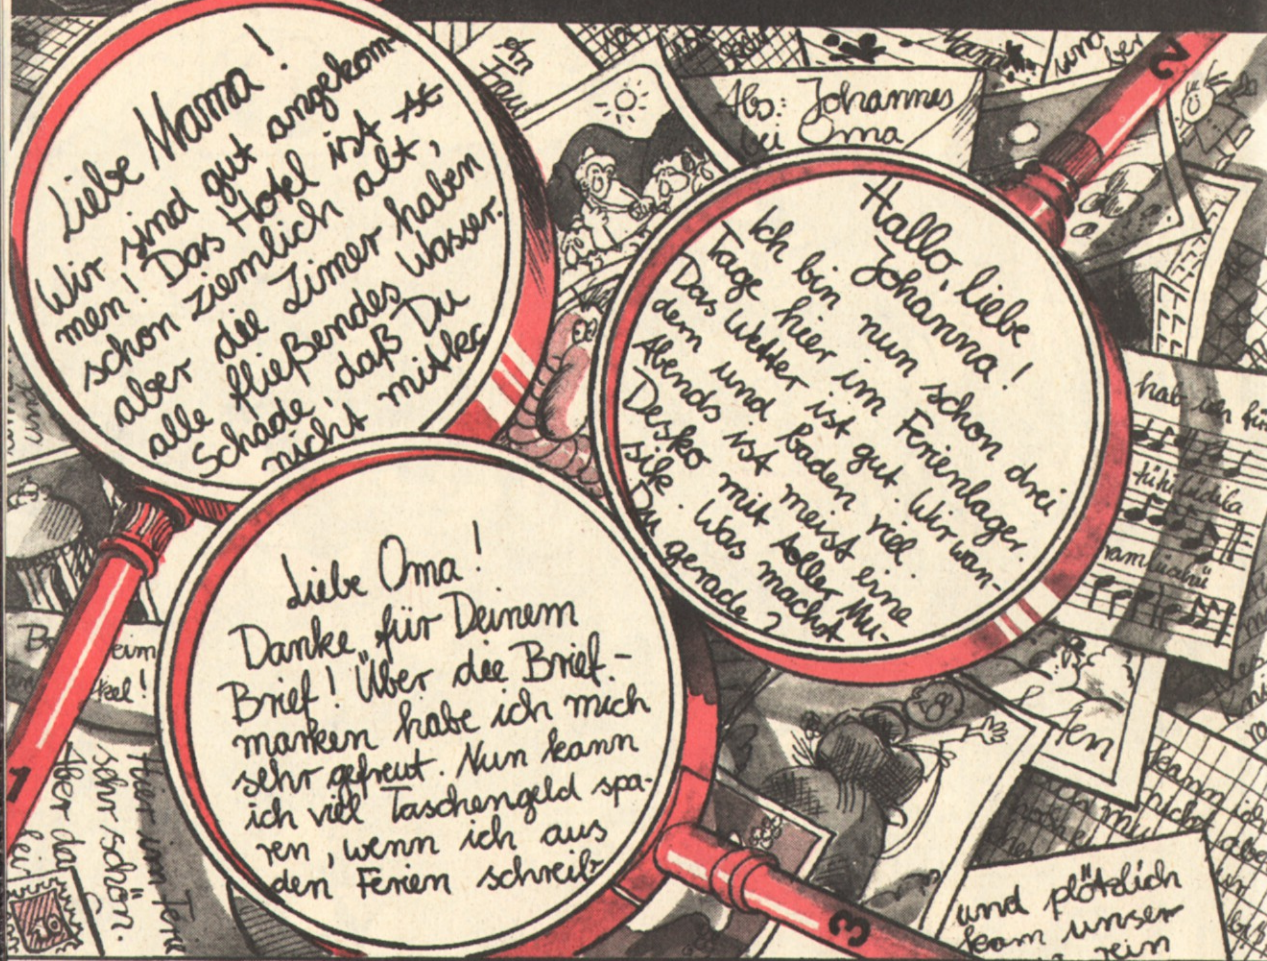 Liebe Mama!
Wir sind gut angekom-
men! Das Hotel ist st
schon ziemlich alt,
aber die Zimer haben
alle fließendes Wasser.
Schade, daß Du
nicht mitko
1
Hallo, liebe
Johanna!
Ich bin nun schon drei
Tage hier im Ferienlager.
Das Wetter ist gut. Wir wan-
dern und baden viel.
Abends ist meist eine
Desko mit toller Mu-
sik. Was machst
Du gerade?
2
Liebe Oma!
Danke für Deinem
Brief! Über die Brief-
marken habe ich mich
sehr gefreut. Nun kann
ich viel Taschengeld spa-
ren, wenn ich aus
den Ferien schreib
3
An
Frau
Abs: Johannes
bei Oma
und
hab ich für
tütülüdila
ten
kann ich
nicht
und plötzlich
kam unser
rein
Hier im Ferie
sehr schön.
Aber da
lei